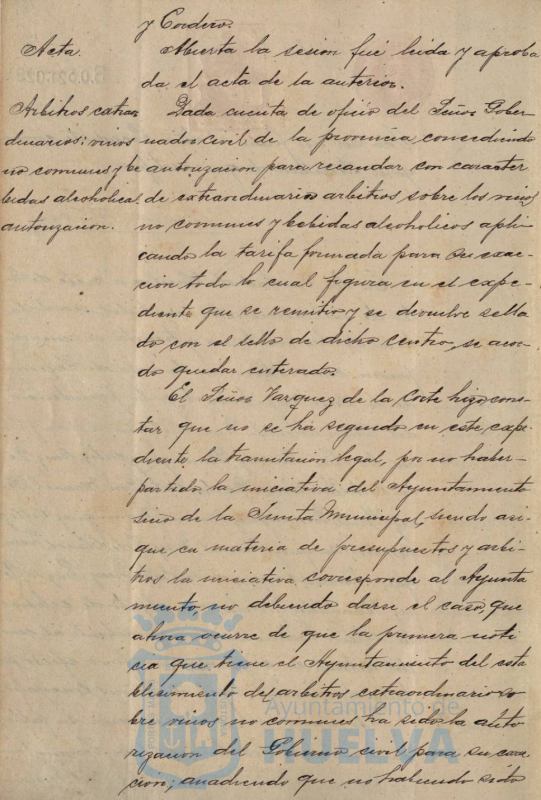 y Cordero.
Acta.
Abierta la sesion fué leida y aproba
da el acta de la anterior.
Arbitros extraor
dinarios: vinos
no comunes y be
bidas alcoholicas,
autorizacion.
Dada cuenta de oficio del Señor Gober-
nador civil de la provincia, concediendo
autorizacion para recaudar con caracter
de extraordinario arbitros sobre los vinos
no comunes y bebidas alcoholicos apli-
cando la tarifa formada para su exac-
cion todo lo cual figura en el expe-
diente que se remitio y se devuelve sella
do con el sello de dicho centro, se acor-
do quedar enterado.
El Señor Vazquez de la Corte hizo cons-
tar que no se ha seguido en este expe-
diente la tramitacion legal, por no haber
partido la iniciativa del Ayuntamiento
sino de la Junta Municipal, siendo asi
que en materia de presupuestos y arbi-
tros la iniciativa corresponde al Ayunta
miento, no debiendo darse el caso, que
ahora ocurre de que la primera noti
cia que tiene el Ayuntamiento del esta
blecimiento de arbitros extraordinario so
bre vinos no comunes ha sido la auto
rizacion del Gobierno civil para su exac
cion; anadiendo que no habiendo sido
Ayuntamiento de
HUELVA